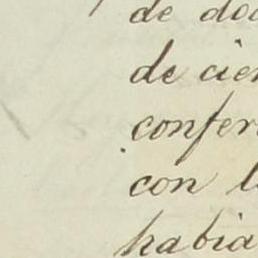 de do
de cien
confer
con l
habia